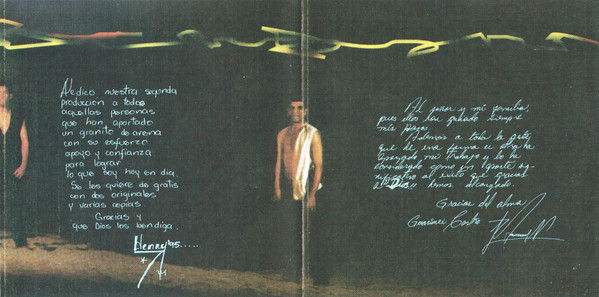 Dedico nuestra segunda
produccion a todas
aquellas personas
que han aportado
un granito de arena
con su esfuerzo
apoyo y confianza
para lograr
lo que soy hoy en día.
Se los quiere de gratis
con dos originales
y varias copias.
Gracias y
que Dios los bendiga.
Henry '95.....
Al señor y mi familia,
pues ellos han guiado siempre
mis pasos.
Además a toda la gente
que de una forma u otra ha
apoyado mi trabajo y lo ha
considerado como un aporte sig-
nificativo al éxito que gracias
a Dios hemos alcanzado.
Gracias del alma
Castro